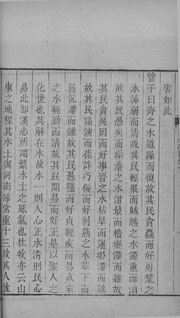 皆如此
管子曰齊之水道躁而復故其民貪麤而好勇楚之
水淖弱而清故其民輕果而賊越之水濁重而洎
故其民愚疾而垢秦之水泔最而稽淤滯而雜故
其民貪戾罔而好事晉之水枯旱而運淤滯而雜
故其民諂諛而葆詐巧佞而好利燕之水萃下而
弱沉滯而雜故其民愚戇而好貞輕疾而易死宋
之水輕勁而清故其民閒易而好正是以聖人之
化世也其解在水故水一則人心正水清則民心
易此即漢志所謂繫水土之風氣也杜牧亦云山
東之地程其水土與河南等常重十三故其人沉